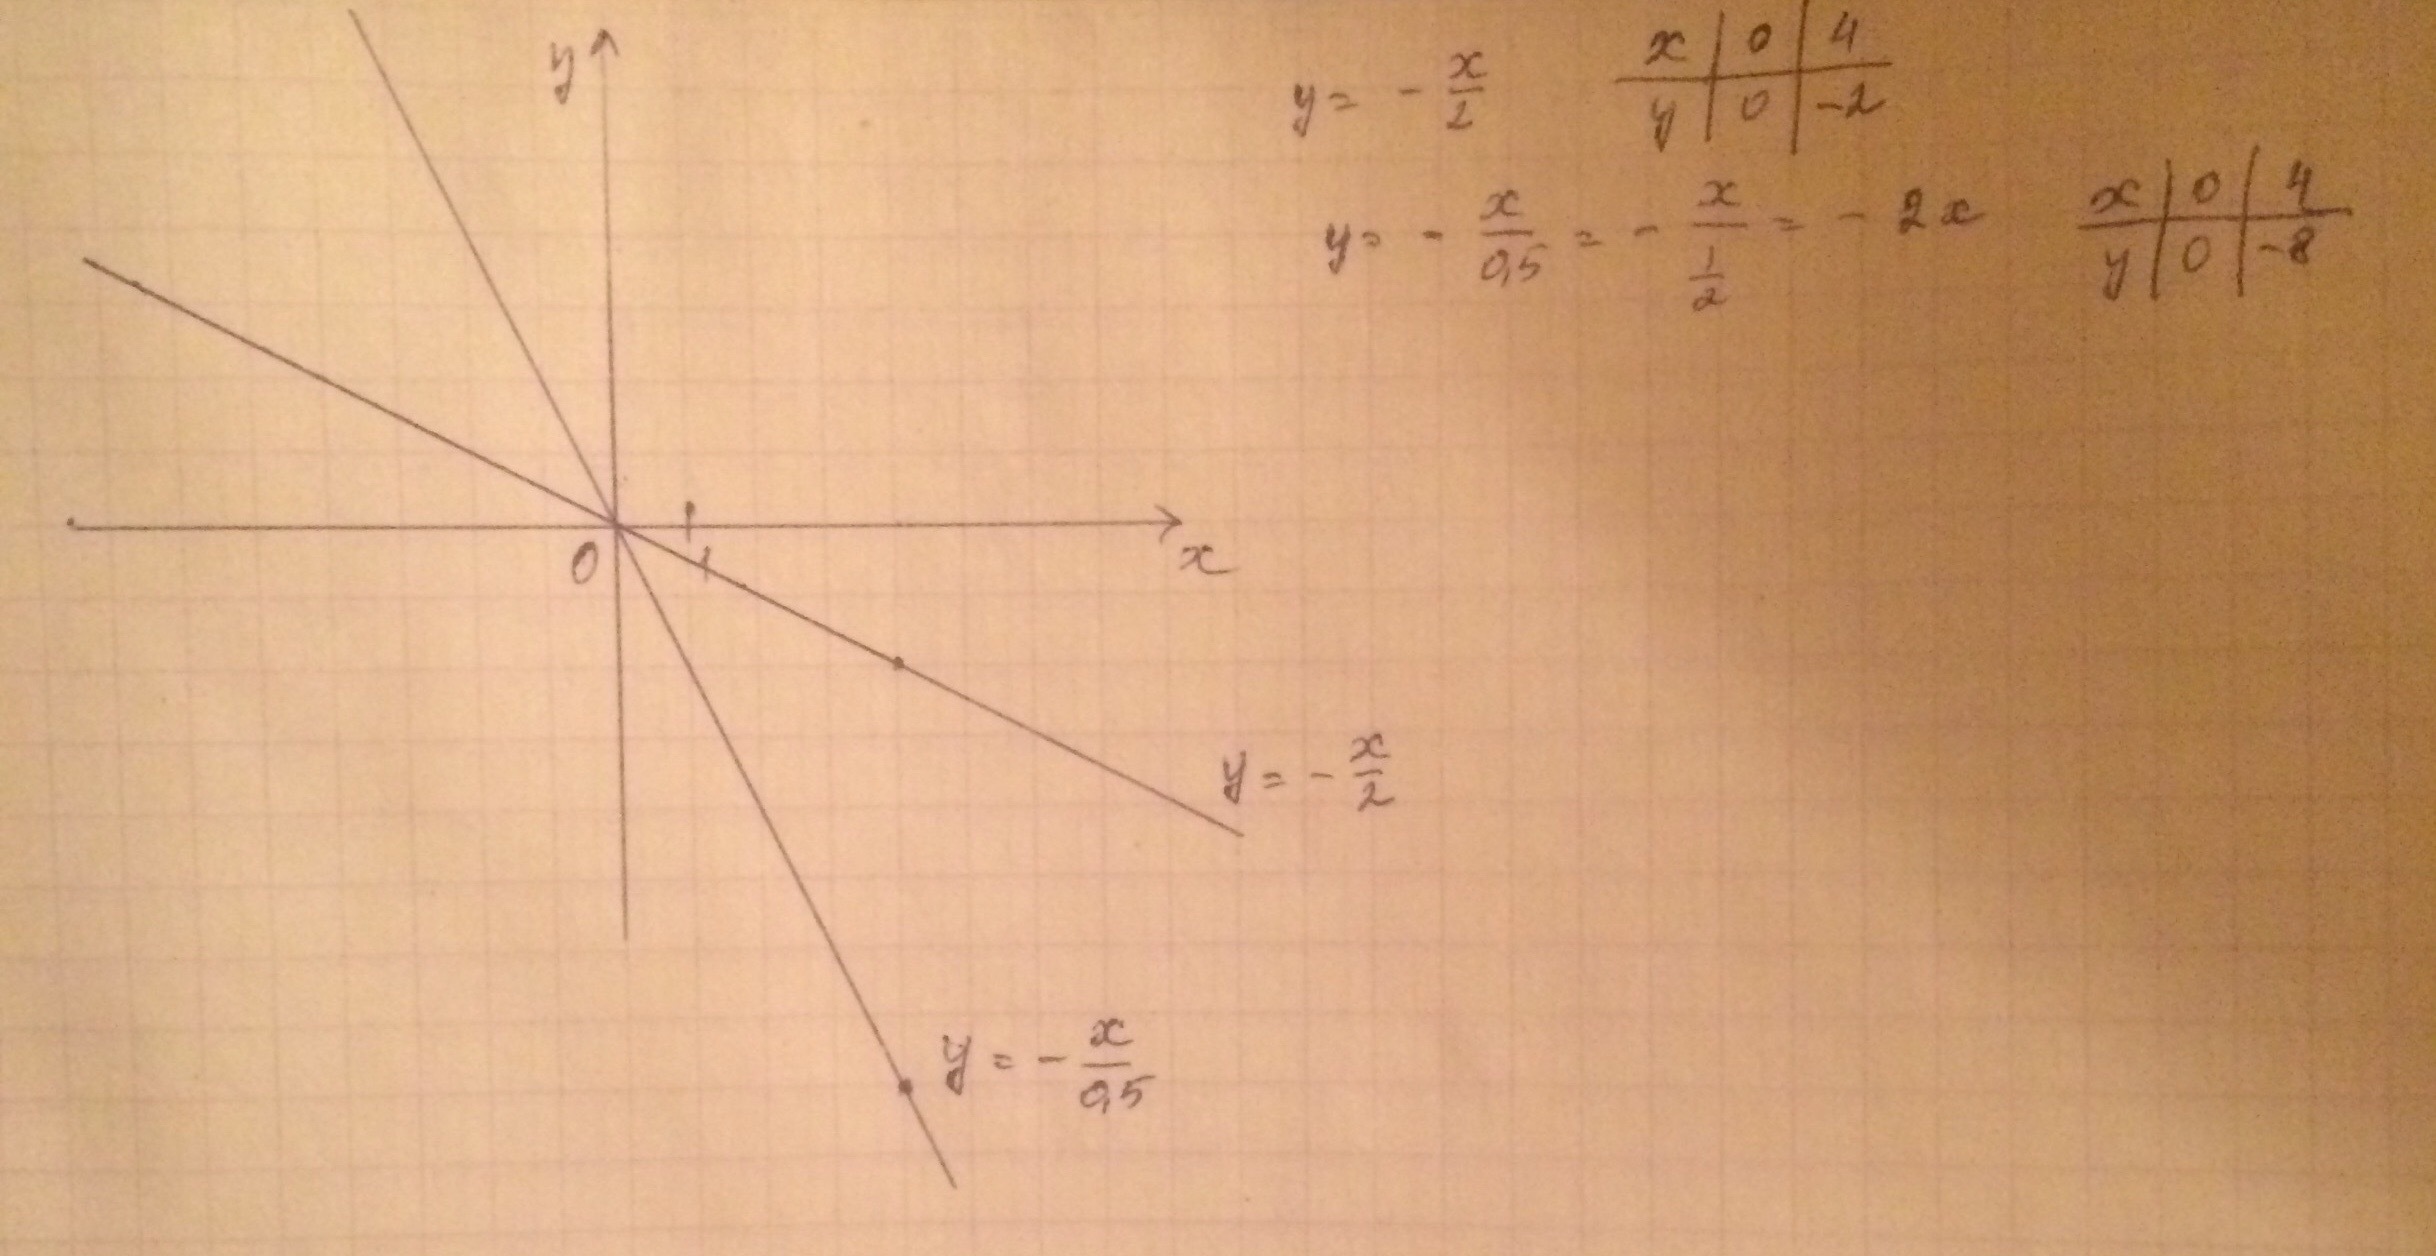 y
y = - x/2
x | 0 | 4
y | 0 | -2
y = - x/0,5 = - x/(1/2) = - 2x
x | 0 | 4
y | 0 | -8
0
1
x
y = - x/2
y = - x/0,5